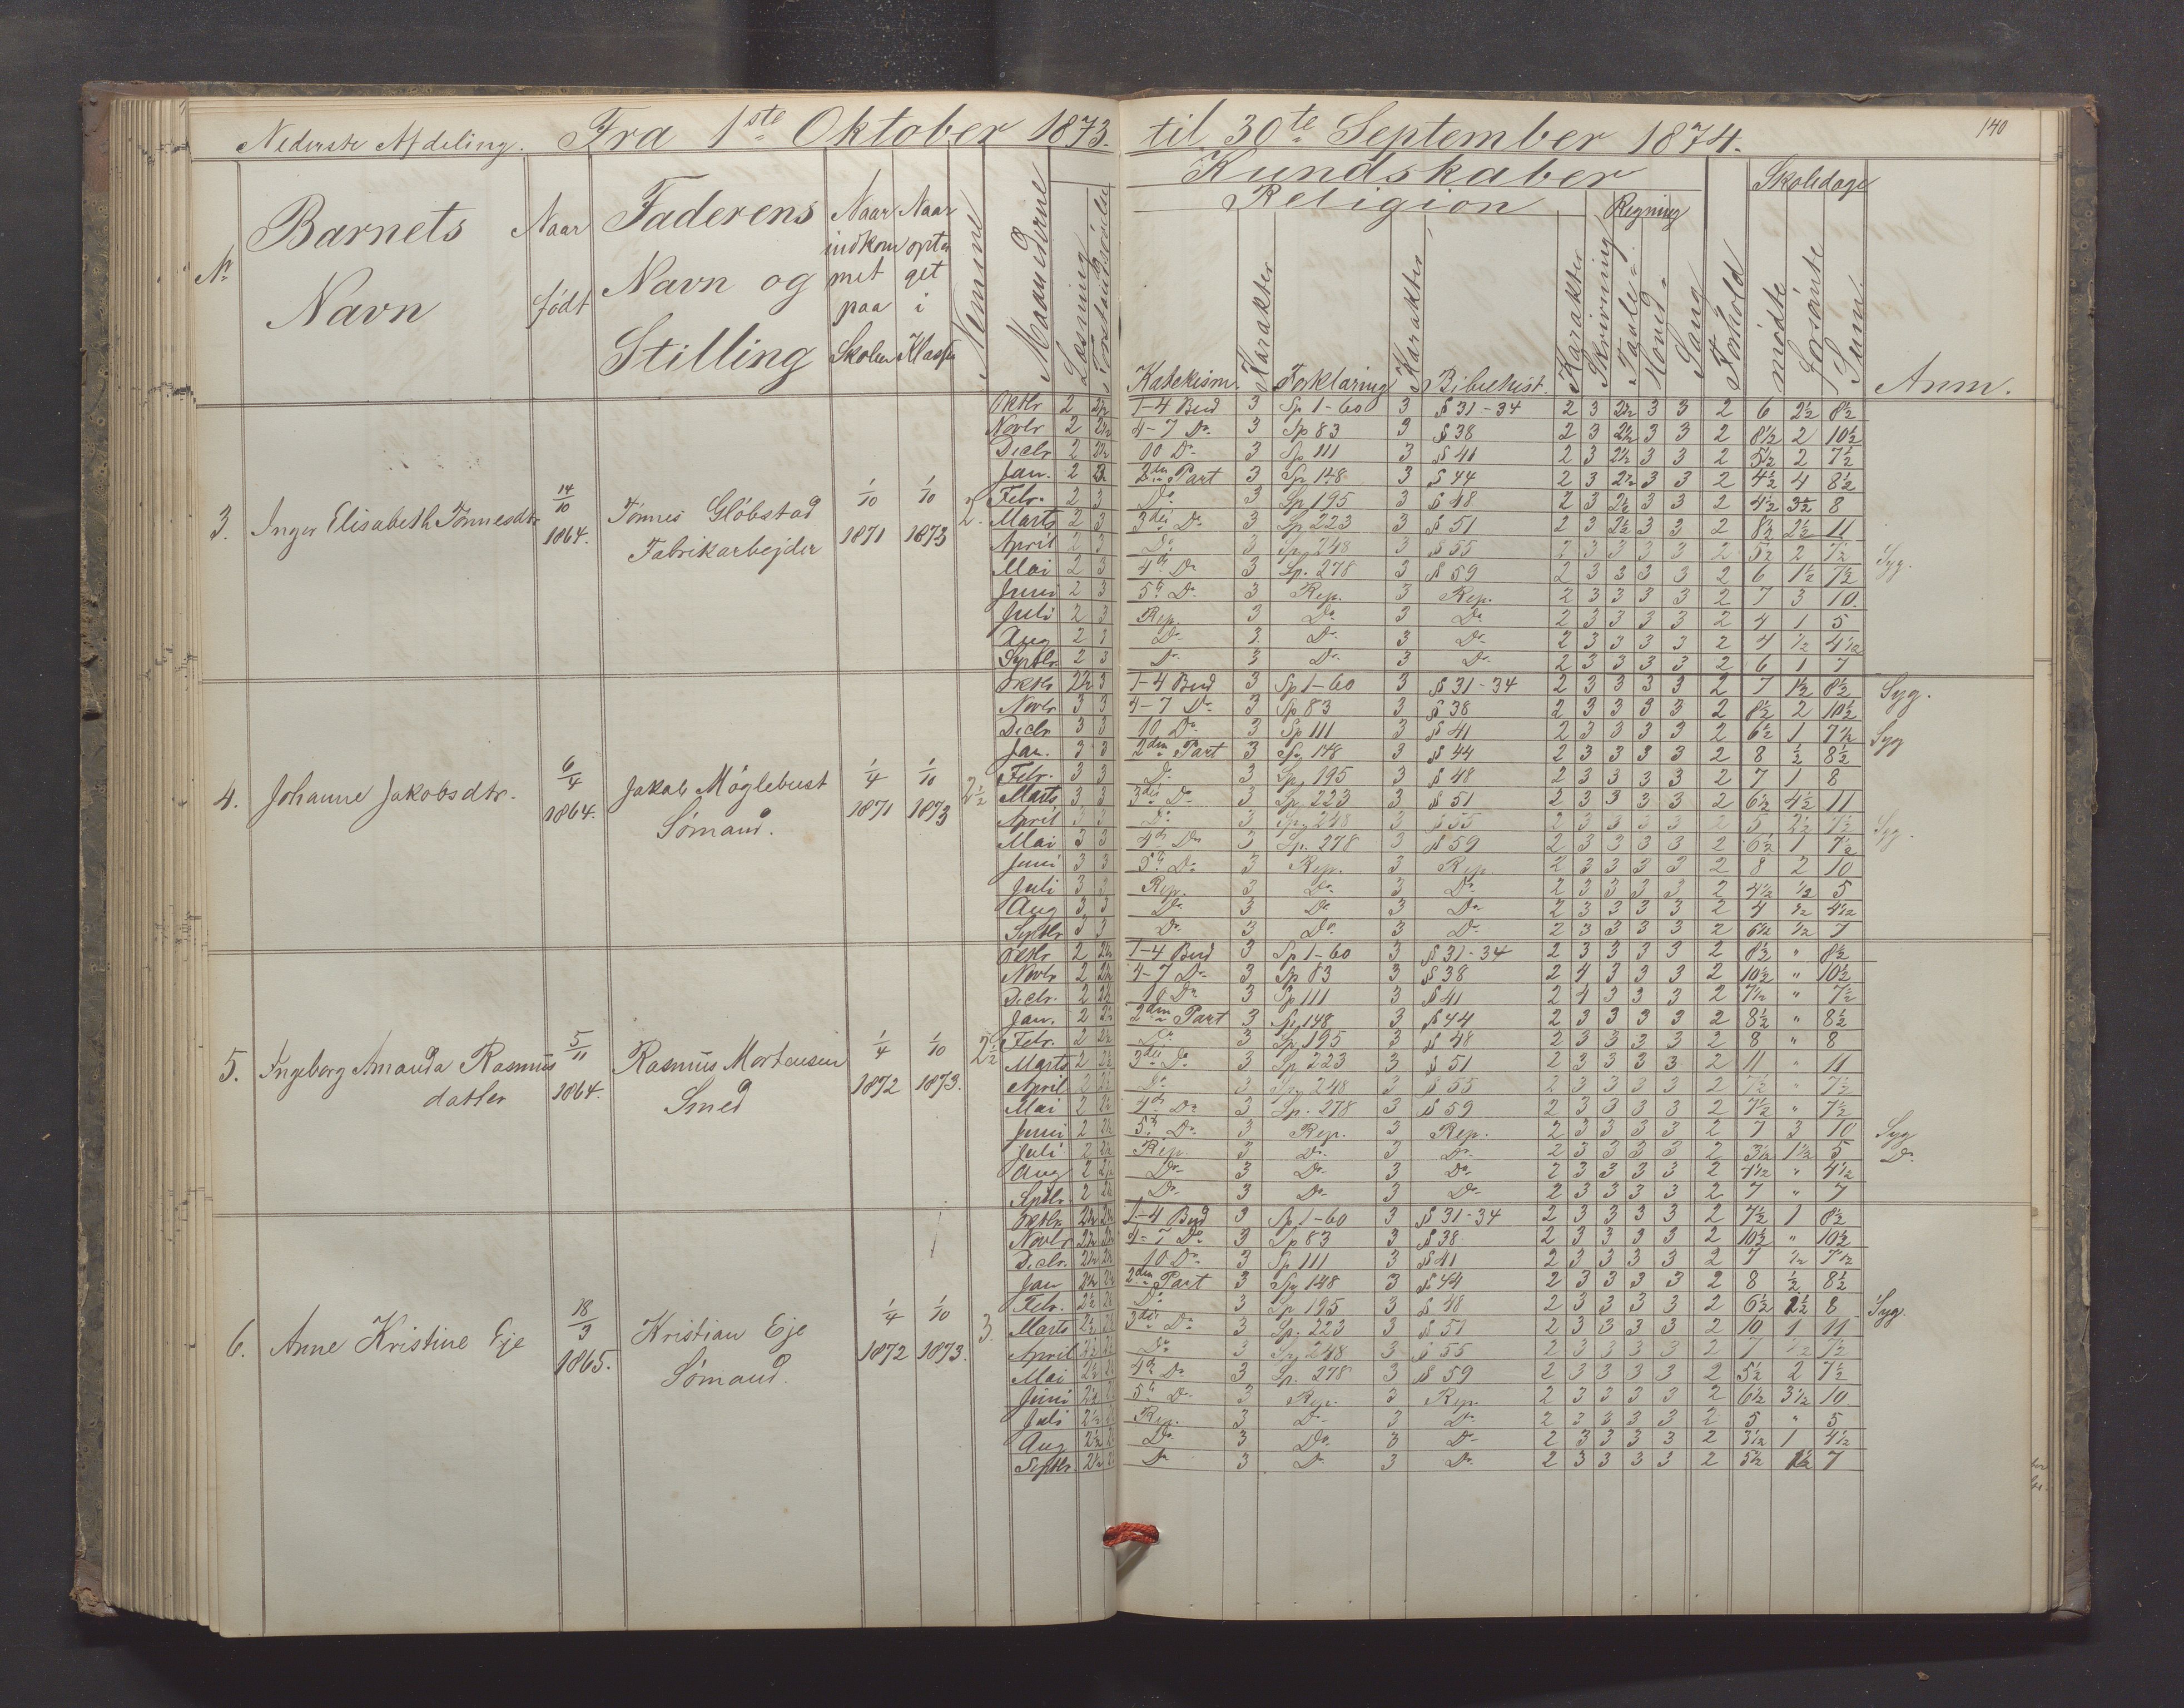 Nederste Afdeling. Fra 1ste Oktober 1873. til 30te September 1874. 140
Kundskaber Skoledage
Religion Regning
No Barnets Navn Naar født Faderens Navn og Stilling Naar indkommet paa Skolen Naar optaget i Klassen Nemme Maanederne Læsning Forstandsøvelse Katekism. Karakter Forklaring Karakter Bibelhist. Karakter Skrivning Tavle- Hoved- Sang Forhold mødte Forsømte Sum Anm.
3. Inger Elisabeth Tønnesdtr 14/10 1864. Tønnes Gløbstad Fabrikarbejder 1/10 1871 1/10 1873 2.
Oktbr 2 2½ 1-4 Bud 3 Sp 1-60 3 § 31-34 2 3 2½ 3 3 2 6 2½ 8½
Novbr 2 2½ 4-7 Do 3 Sp 83 3 § 38 2 3 2½ 3 3 2 8½ 2 10½
Decbr 2 2½ 10 Do 3 Sp 111 3 § 41 2 3 2½ 3 3 2 5½ 2 7½
Jan. 2 2½ 2den Part 3 Sp 148 3 § 44 2 3 2½ 3 3 2 4½ 4 8½
Febr. 2 3 Do 3 Sp 195 3 § 48 2 3 2½ 3 3 2 4½ 3½ 8
Marts 2 3 3die Do 3 Sp 223 3 § 51 2 3 2½ 3 3 2 8½ 2½ 11
April 2 3 Do 3 Sp 248 3 § 55 2 3 3 3 3 2 5½ 2 7½ Syg.
Mai 2 3 4de Do 3 Sp. 278 3 § 59 2 3 3 3 3 2 6 1½ 7½
Juni 2 3 5te Do 3 Rep. 3 Rep. 2 3 3 3 3 2 7 3 10.
Juli 2 3 Rep. 3 Do 3 Do 2 3 3 3 3 2 4 1 5
Aug 2 3 Do 3 Do 3 Do 2 3 3 3 3 2 4 ½ 4½
Septbr. 2 3 Do 3 Do 3 Do 2 3 3 3 3 2 6 1 7
4. Johanne Jakobsdtr. 6/4 1864. Jakob Møglebust Sømand. 1/4 1871 1/10 1873 2½
Oktbr 2½ 3 1-4 Bud 3 Sp 1-60 3 § 31-34 2 3 3 3 3 2 7 1½ 8½ Syg.
Novbr 3 3 4-7 Do 3 Sp 83 3 § 38 2 3 3 3 3 2 8½ 2 10½
Decbr 3 3 10 Do 3 Sp 111 3 § 41 2 3 3 3 3 2 6½ 1 7½ Syg
Jan. 3 3 2den Part 3 Sp 148 3 § 44 2 3 3 3 3 2 8 ½ 8½
Febr. 3 3 Do 3 Sp 195 3 § 48 2 3 3 3 3 2 7 1 8
Marts 3 3 3die Do 3 Sp 223 3 § 51 2 3 3 3 3 2 6½ 4½ 11
April 3 3 Do 3 Sp 248 3 § 55 2 3 3 3 3 2 5 2½ 7½ Syg.
Mai 3 3 4de Do 3 Sp. 278 3 § 59 2 3 3 3 3 2 6½ 1 7½
Juni 3 3 5te Do 3 Rep. 3 Rep. 2 3 3 3 3 2 8 2 10
Juli 3 3 Rep. 3 Do 3 Do 2 3 3 3 3 2 4½ ½ 5
Aug 3 3 Do 3 Do 3 Do 2 3 3 3 3 2 4 ½ 4½
Septbr 3 3 Do 3 Do 3 Do 2 3 3 3 3 2 6½ ½ 7
5. Ingeborg Amanda Rasmusdatter 5/11 1864. Rasmus Mortensen Smed 1/4 1872 1/10 1873. 2½
Oktbr 2 2½ 1-4 Bud 3 Sp 1-60 3 § 31-34 2 3 3 3 3 2 8½ " 8½
Novbr 2 2½ 4-7 Do 3 Sp 83 3 § 38 2 4 3 3 3 2 10½ " 10½
Decbr. 2 2½ 10 Do 3 Sp 111 3 § 41 2 4 3 3 3 2 7½ " 7½
Jan. 2 2½ 2den Part 3 Sp 148 3 § 44 2 3 3 3 3 2 8½ " 8½
Febr. 2 2½ Do 3 Sp 195 3 § 48 2 3 3 3 3 2 8 " 8
Marts 2 2½ 3die Do 3 Sp 223 3 § 51 2 3 3 3 3 2 11 " 11
April 2 2½ Do 3 Sp 248 3 § 55 2 3 3 3 3 2 7½ " 7½
Mai 2 2½ 4de Do 3 Sp. 278 3 § 59 2 3 3 3 3 2 7½ " 7½
Juni 2 2½ 5te Do 3 Rep. 3 Rep. 2 3 3 3 3 2 7 3 10 Syg
Juli 2 2½ Rep. 3 Do 3 Do 2 3 3 3 3 2 3½ 1½ 5 Do
Aug 2 2½ Do 3 Do 3 Do 2 3 3 3 3 2 4½ " 4½
Septbr. 2 2½ Do 3 Do 3 Do 2 3 3 3 3 2 7 " 7
6. Anne Kristine Eje 18/3 1865. Kristian Eje Sømand. 1/4 1872 1/10 1873. 3.
Oktbr. 2½ 2½ 1-4 Bud 3 Sp 1-60 3 § 31-34 2 3 3 3 3 2 7½ 1 8½
Novbr 2½ 2½ 4-7 Do 3 Sp 83 3 § 38 2 3 3 3 3 2 10½ " 10½
Decbr. 2½ 2½ 10 Do 3 Sp 111 3 § 41 2 3 3 3 3 2 7 ½ 7½
Jan 2½ 2½ 2den Part 3 Sp 148 3 § 44 2 3 3 3 3 2 8 ½ 8½
Febr. 2½ Do 3 Sp 195 3 § 48 2 3 3 3 3 2 6½ 1½ 8 Syg.
Marts 2½ 3die Do 3 Sp. 223 3 § 51 2 3 3 3 3 2 10 1 11
April 2½ Do 3 Sp 248 3 § 55 2 3 3 3 3 2 7 ½ 7½
Mai 2½ 4de Do 3 Sp. 278 3 § 59 2 3 3 3 3 2 5½ 2 7½
Juni 2½ 5te Do 3 Rep. 3 Rep. 2 3 3 3 3 2 6½ 3½ 10
Juli 2½ Rep. 3 Do 3 Do 2 3 3 3 3 2 5 " 5
Aug 2½ Do 3 Do 3 Do 2 3 3 3 3 2 3½ 1 4½
Septbr. 2½ Do 3 Do 3 Do 2 3 3 3 3 2 5½ 1½ 7